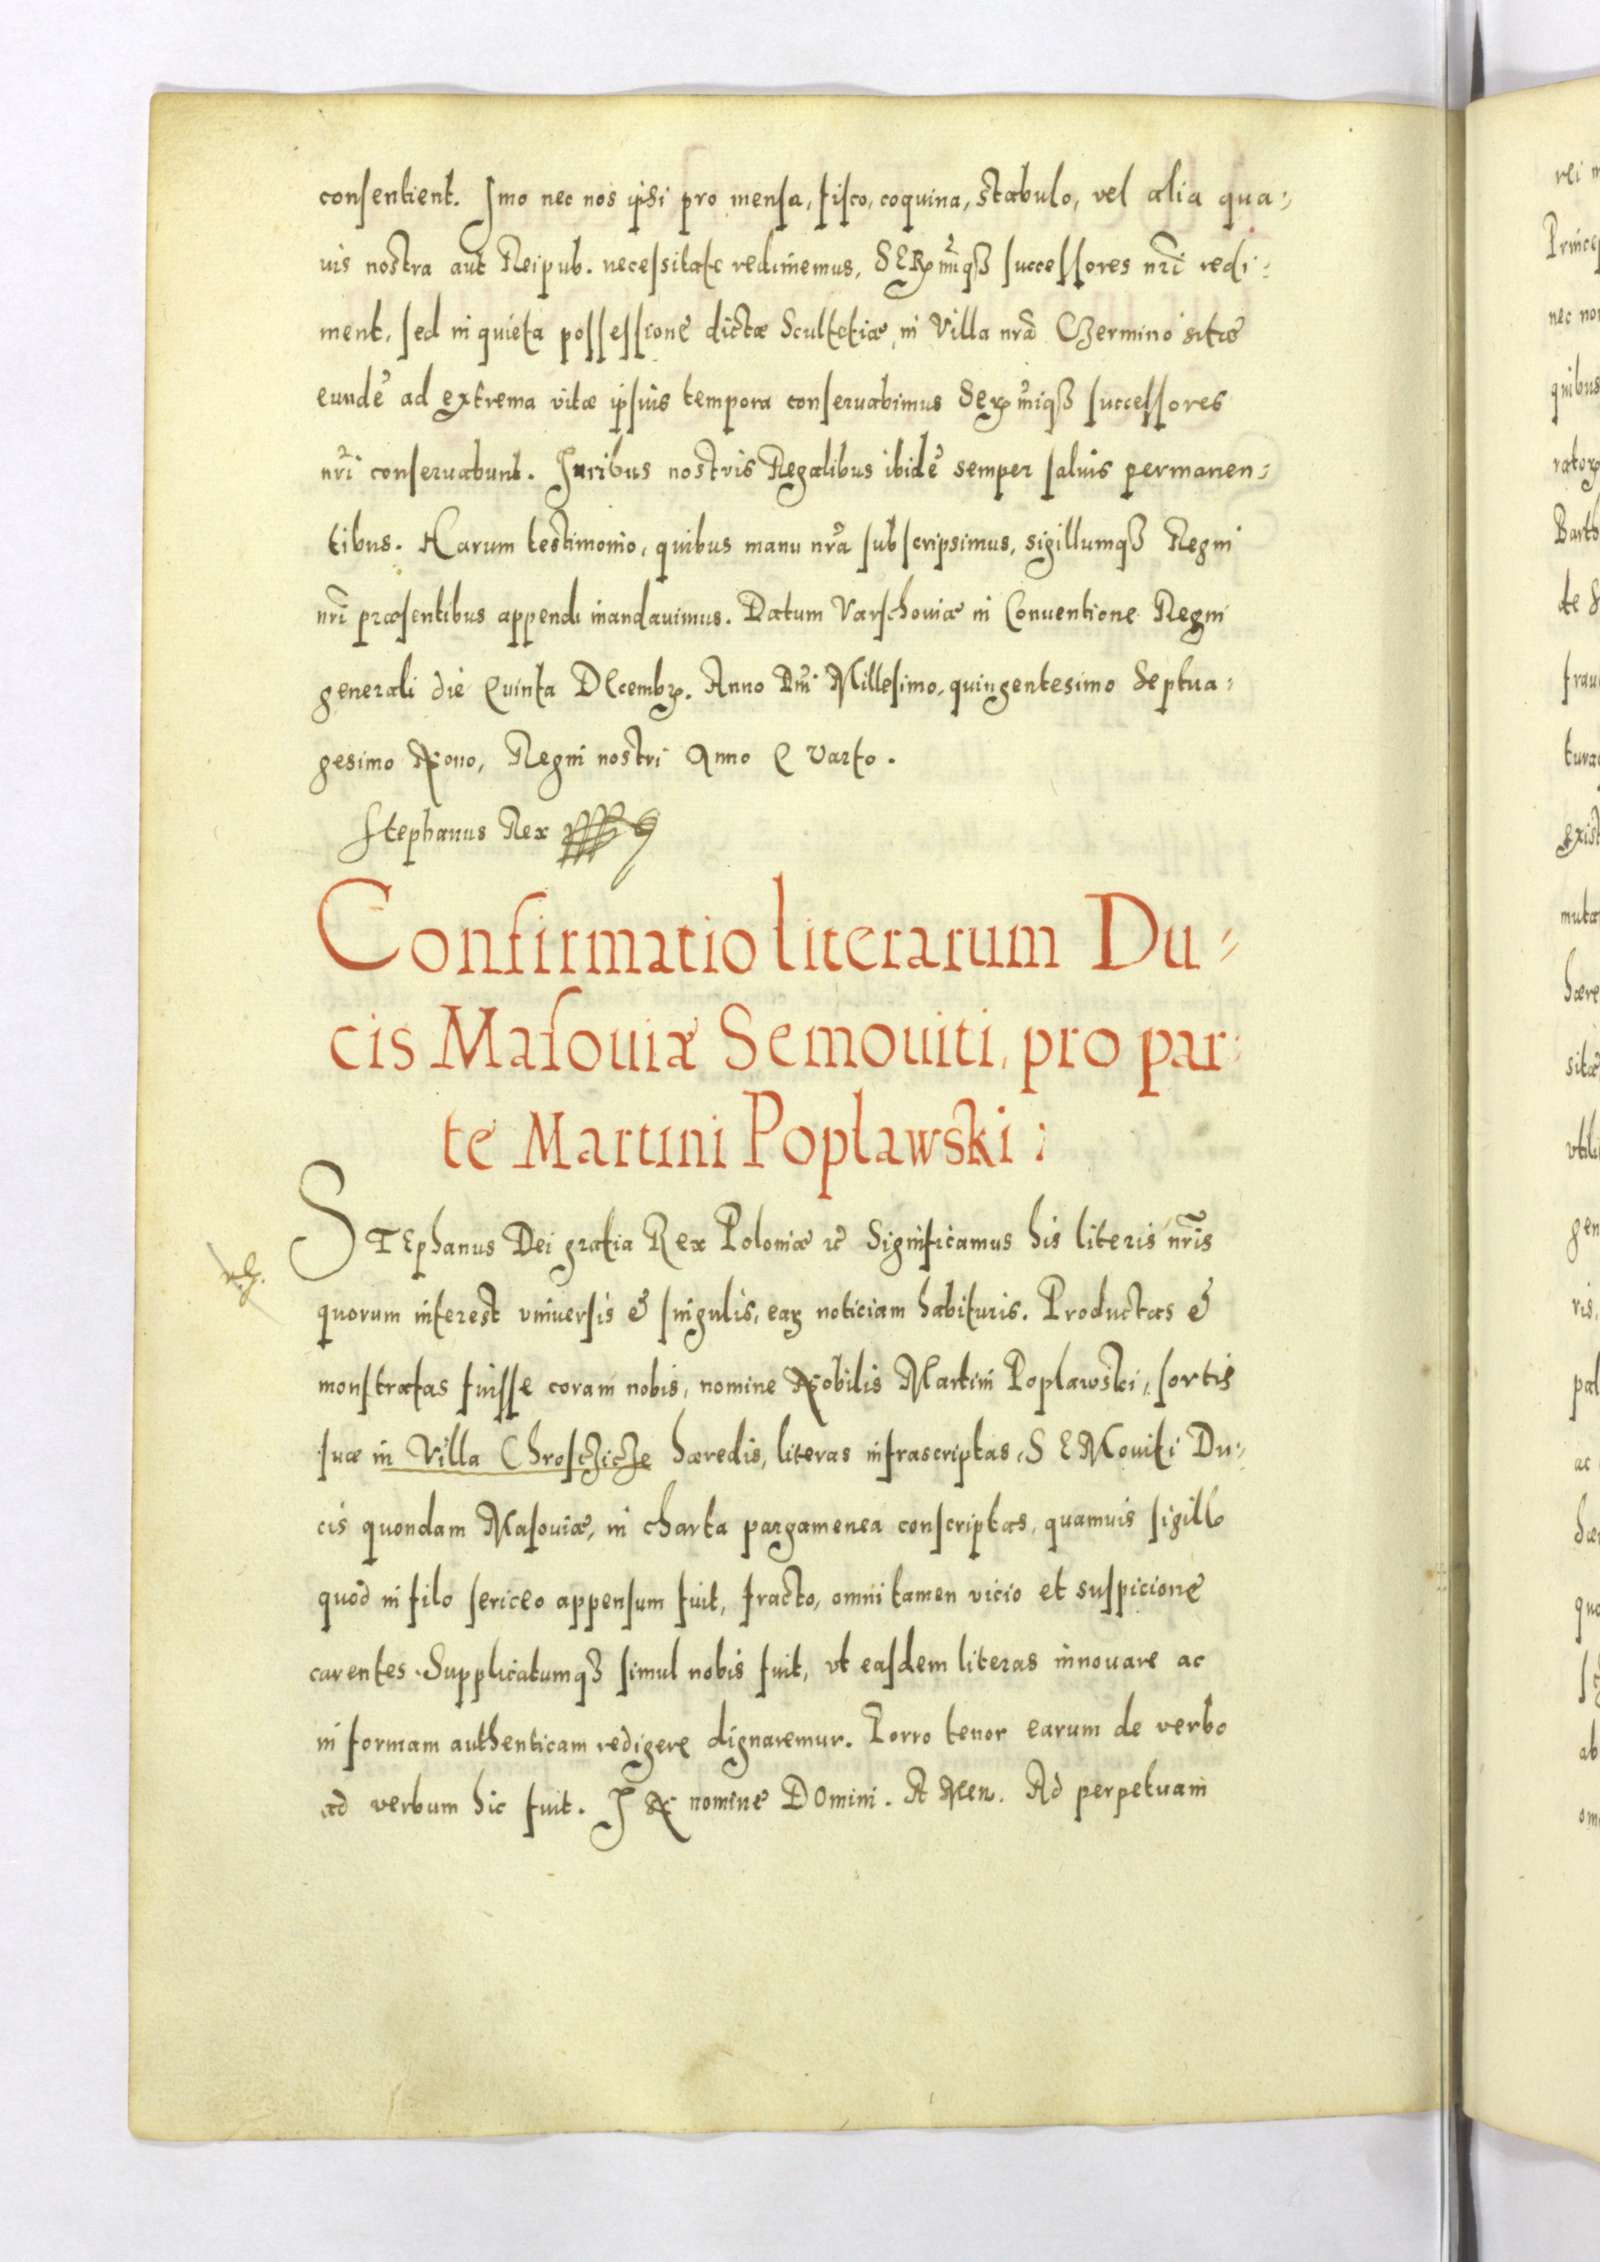 consentient. Imo nec nos ipsi pro mensa, fisco, coquina, stabulo, vel alia qua:
uis nostra aut Reipub. necessitate redimemus, SERmiq3 successores nr̃i redi:
ment, sed in quieta possessione dictæ Scultetiæ, in Villa nrã Czermino sitæ
eundẽ ad extrema vitæ ipsius tempora conseruabimus Sermiq3 successores
nr̃i conseruabunt. Iuribus nostris Regalibus ibidẽ semper saluis permanen:
tibus. Harum testimonio, quibus manu nrã subscripsimus, sigillumq3 Regni
nr̃i præsentibus appendi mandauimus. Datum Varschouiæ in Conuentione Regni
generali die Quinta DEcembr. Anno Dñi Millesimo, quingentesimo Septua:
gesimo Nono, Regni nostri Anno Quarto.
Stephanus Rex
Confirmatio literarum Du:
cis Masouiæ Semouiti, pro par:
te Martini Popławski:
STEphanus Dei gratia Rex Poloniæ &c Significamus his literis nr̃is
quorum interest vniuersis & singulis, ear noticiam habituris. Productas &
monstratas fuisse coram nobis, nomine Nobilis Martini Poplawski, sortis
suæ in Villa Chrosczicze hæredis, literas infrascriptas, SEMouiti Du:
cis quondam Masouiæ, in charta pargamenea conscriptas, quamuis sigillo
quod in filo sericeo appensum fuit, fracto, omni tamen vicio et suspicione
carentes. Supplicatumq3 simul nobis fuit, vt easdem literas innouare ac
in formam authenticam redigere dignaremur. Porro tenor earum de verbo
ad verbum hic fuit. IN nomine DOmini. AMen. Ad perpetuam
rei
nec non
quibus
Barth
de
existi
ris,
ac
ab